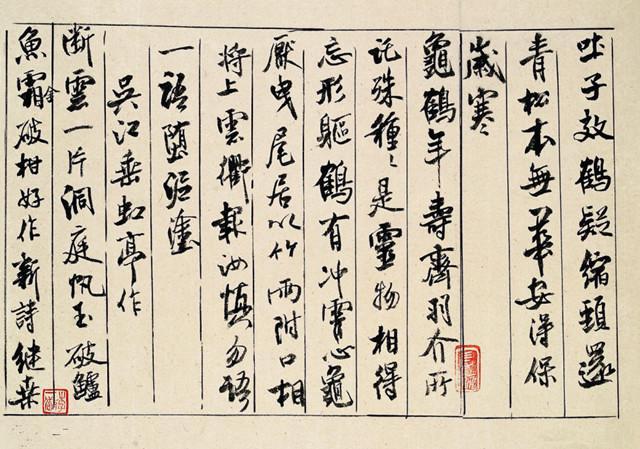 吐子效鶴疑縮頸還
青松本無華安得保
歲寒
龜鶴年壽齊羽介所
託殊種〻是靈物相得
忘形軀鶴有沖霄心龜
厭曳尾居以竹兩附口相
將上雲衢報汝慎勿語
一語墮泥塗
吳江垂虹亭作
断雲一片洞庭帆玉破鱸
魚霜金破柑好作新詩継桑